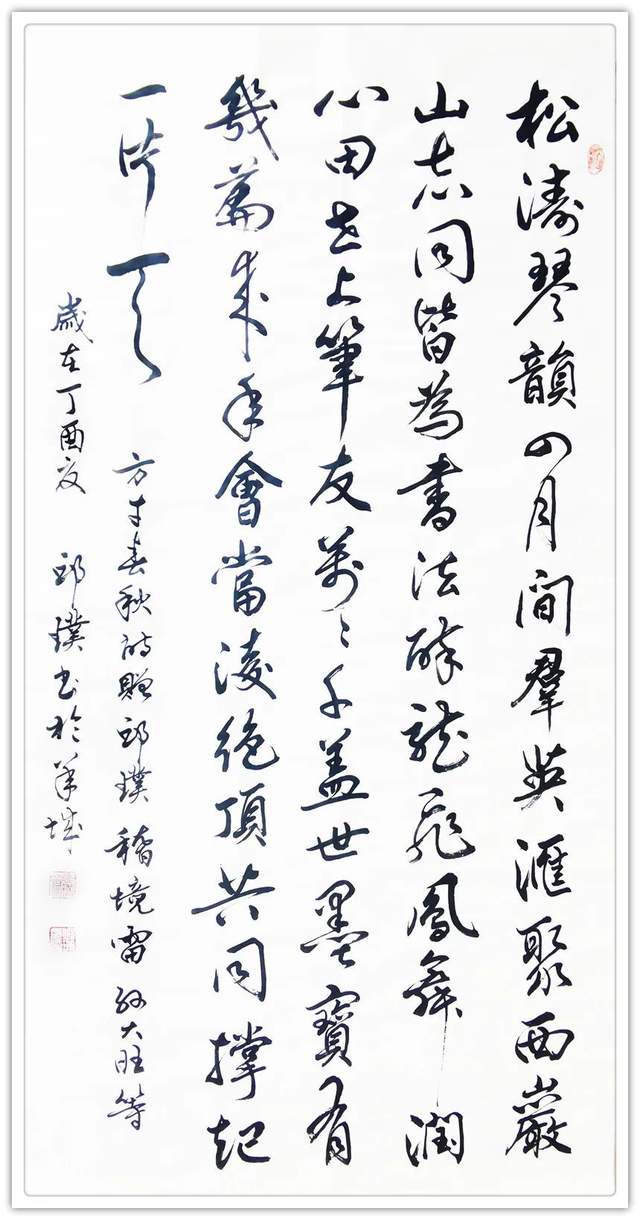 松濤琴韻四月間羣英滙聚西巖
山志同皆為書法醉龍飛鳳舞潤
心田世上筆友萬〻千蓋世墨寶有
幾篇來年會當淩絕頂共同撐起
一片天
方寸春秋詩贈邱璞境雷孫大旺等
歲在丁酉夏 邱璞書於羊城